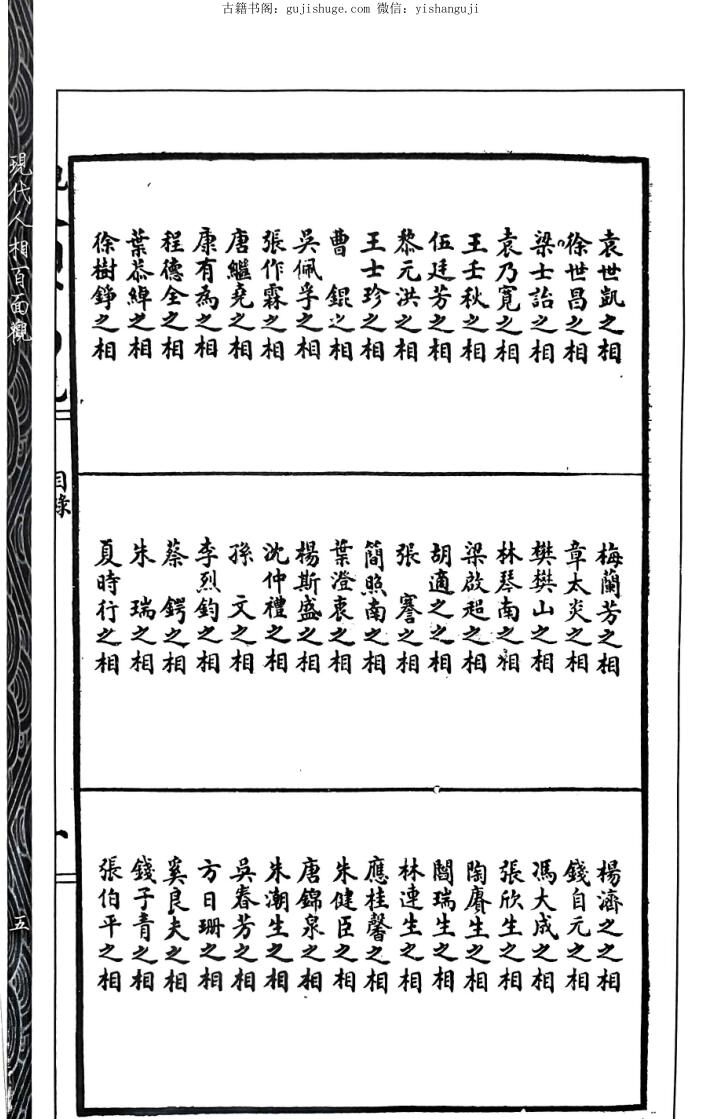 古籍书阁：gujishuge.com 微信：yishanguji
袁世凱之相
徐世昌之相
梁士詒之相
袁乃寬之相
王壬秋之相
伍廷芳之相
黎元洪之相
王士珍之相
曹錕之相
吳佩孚之相
張作霖之相
唐繼堯之相
康有為之相
程德全之相
葉恭綽之相
徐樹錚之相
梅蘭芳之相
章太炎之相
樊樊山之相
林琴南之相
梁啟超之相
胡適之之相
張謇之相
簡照南之相
葉澄衷之相
楊斯盛之相
沈仲禮之相
孫文之相
李烈鈞之相
蔡鍔之相
朱瑞之相
夏時行之相
楊濟之之相
錢自元之相
馮大成之相
張欣生之相
陶賡生之相
閻瑞生之相
林連生之相
應桂馨之相
朱健臣之相
唐錦泉之相
朱潮生之相
吳春芳之相
方日珊之相
奚良夫之相
錢子青之相
張伯平之相
目錄
現代人相百面觀
五